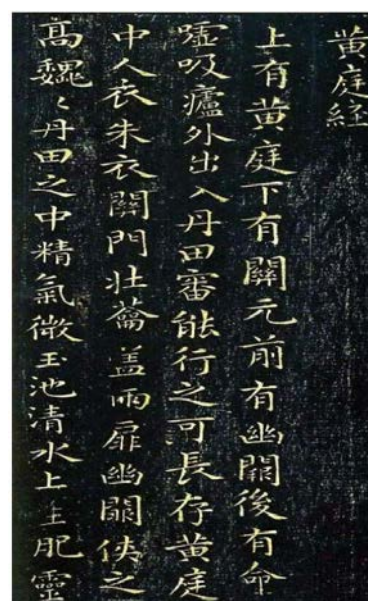 黄庭経
上有黄庭下有關元前有幽闕後有命
嘘吸廬外出入丹田審能行之可長存黄庭
中人衣朱衣關門壮蘥盖兩扉幽闕俠之
高魏〻丹田之中精氣微玉池清水上生肥靈